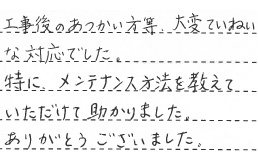 工事後のあつかい方等、大変ていねい
な対応でした。
特に、メンテナンス方法を教えて
いただけて助かりました。
ありがとうございました。